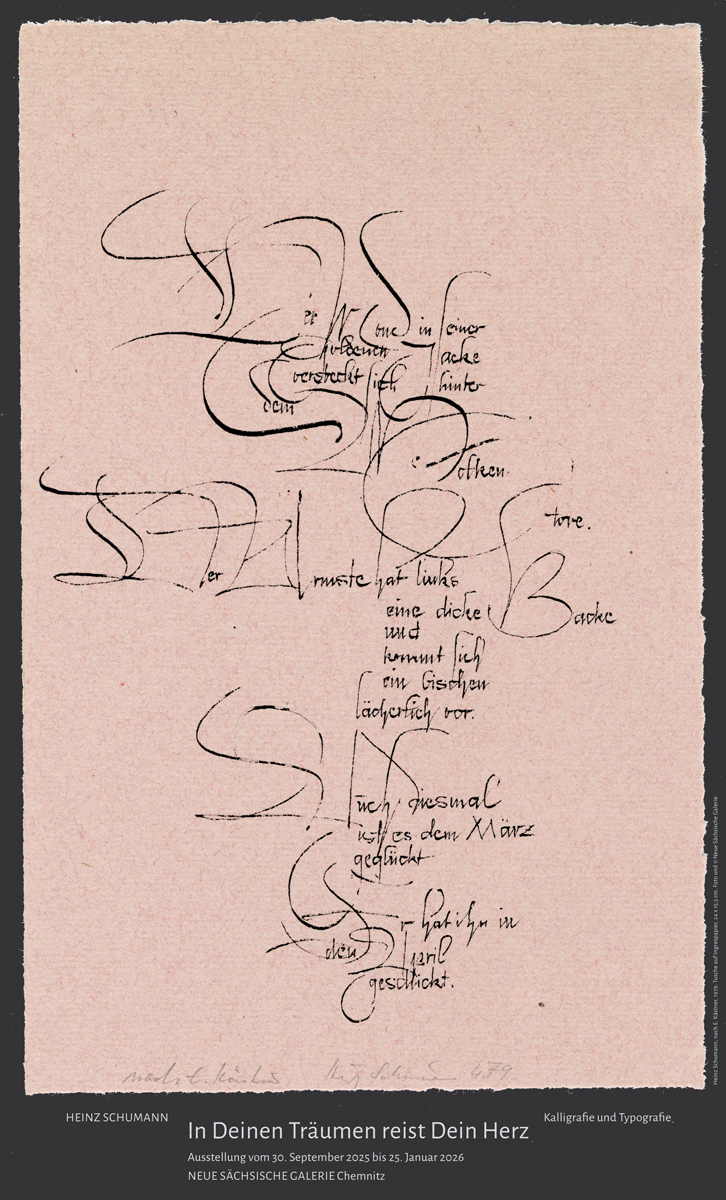 Der Mond in seiner
goldenen Jacke
versteckt sich hinter
dem
Wolken
Store.
Der Ärmste hat links
eine dicke Backe
und
kommt sich
ein bischen
lächerlich vor.
Auch diesmal
ist es dem März
geglückt
Er hat ihn in
den April
geschickt.
nach E. Kästner 4.79
HEINZ SCHUMANN
Kalligrafie und Typografie
In Deinen Träumen reist Dein Herz
Ausstellung vom 30. September 2025 bis 25. Januar 2026
NEUE SÄCHSISCHE GALERIE Chemnitz
Heinz Schumann, nach E. Kästner, 1979, Tusche auf Ingrespapier, 24 x 15,5 cm, Foto und © Neue Sächsische Galerie